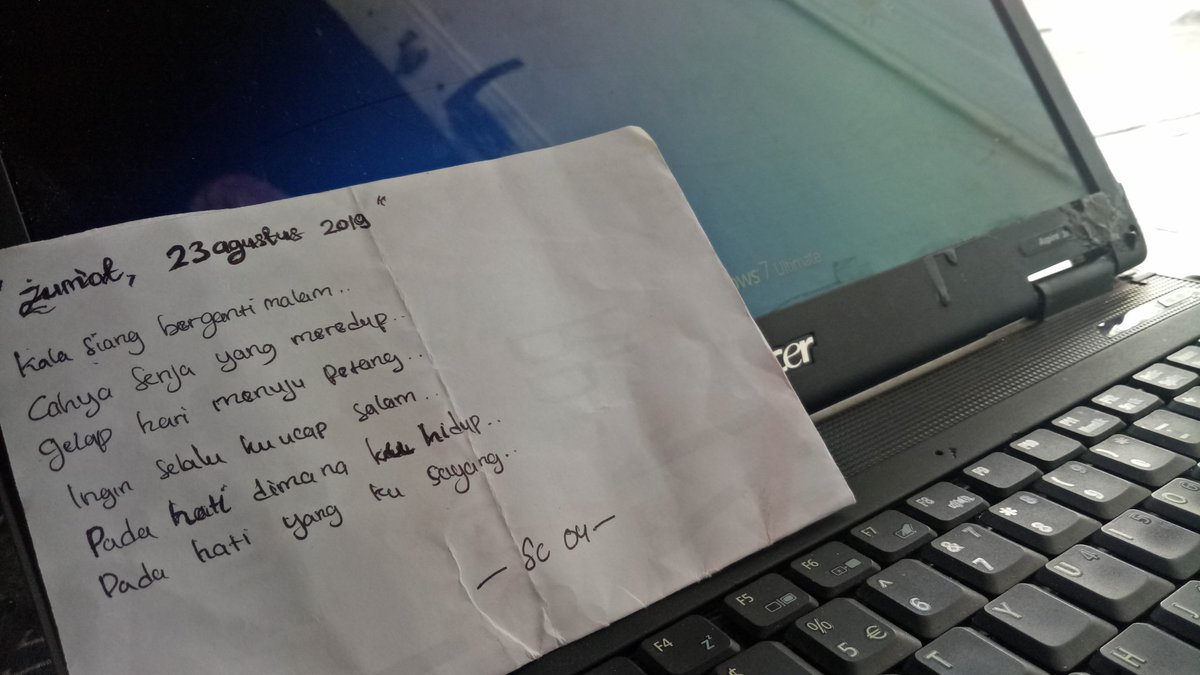 " Jumat, 23 agustus 2019 "
Kala siang berganti malam..
Cahya senja yang meredup..
gelap hari menuju petang..
Ingin selalu ku ucap salam..
Pada hati dimana hidup..
Pada hati yang ku sayang..
— SC 04 —
ws 7 Ultimate
Aspire
cer
F4 Z
F5
F6
F7
F8
% 5 €
^ 6
& 7
* 8
T
Y
U 4
I 5
H
J